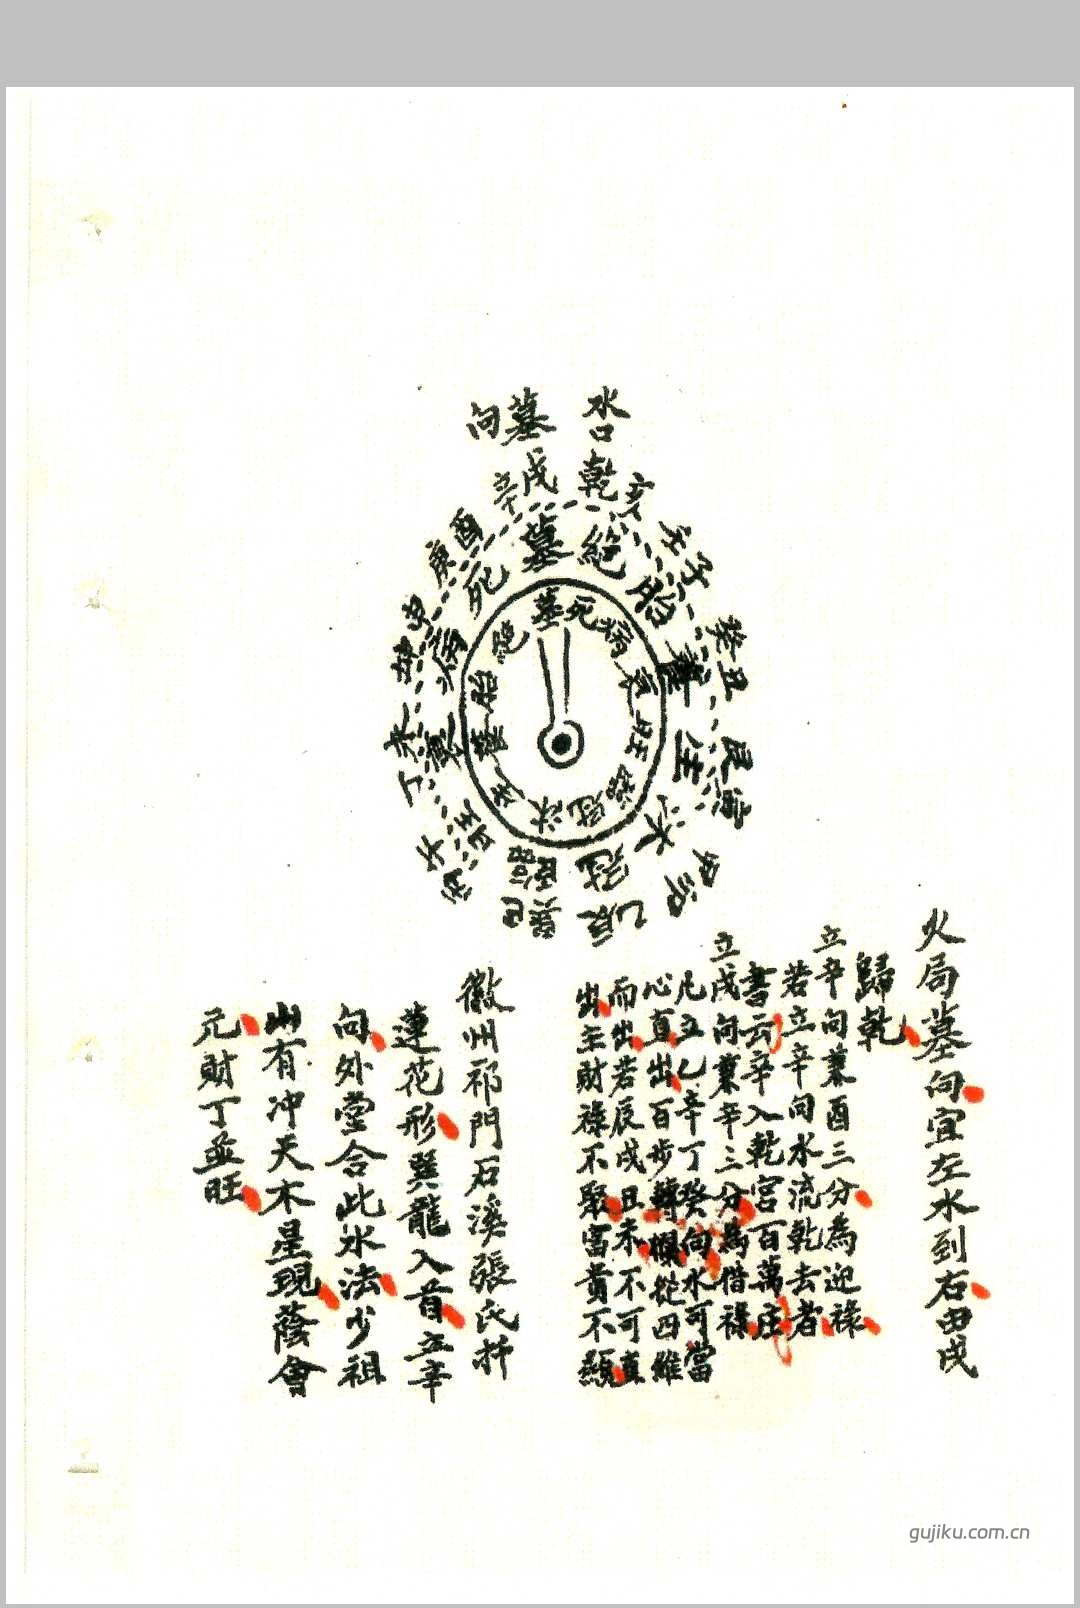 水口
墓向
乾亥
辛戌
庚酉
坤申
丁未
丙午
巽巳
乙辰
甲卯
艮寅
癸丑
壬子
墓絕胎養生沐冠臨旺衰病死
墓死病衰旺臨冠沐生養胎絕
火局墓向宜左水到右由戌
歸乾
立辛向兼酉三分為迎祿
若立辛向水流乾去者
書云辛入乾宮百萬庄
立戌向兼辛三分為借祿
凡立乙辛丁癸向水可當
心直出百步轉欄從四維
而出若辰戌丑未不可直
出主財祿不聚富貴不顯
徽州祁門石溪張氏扦
蓮花形巽龍入首立辛
向外堂合此水法少祖
山有冲天木星現蔭會
元財丁並旺
gujiku.com.cn